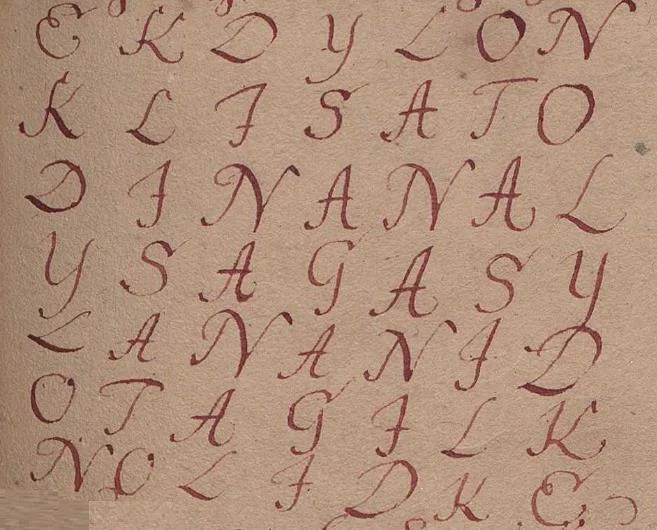 E K D Y L O N
K L I S A T O
D I N A N A L
Y S A G A S Y
L A N A N I D
O T A G I L K
N O L I D K E